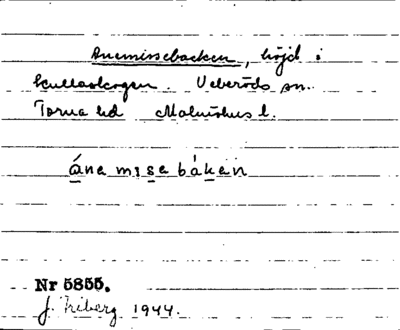 Anemissebacken, höjd i
Kullaskogen. Veberöds sn.
Torna hd Malmöhus l.
ánamisabákan
Nr 5855.
J. Friberg 1944.